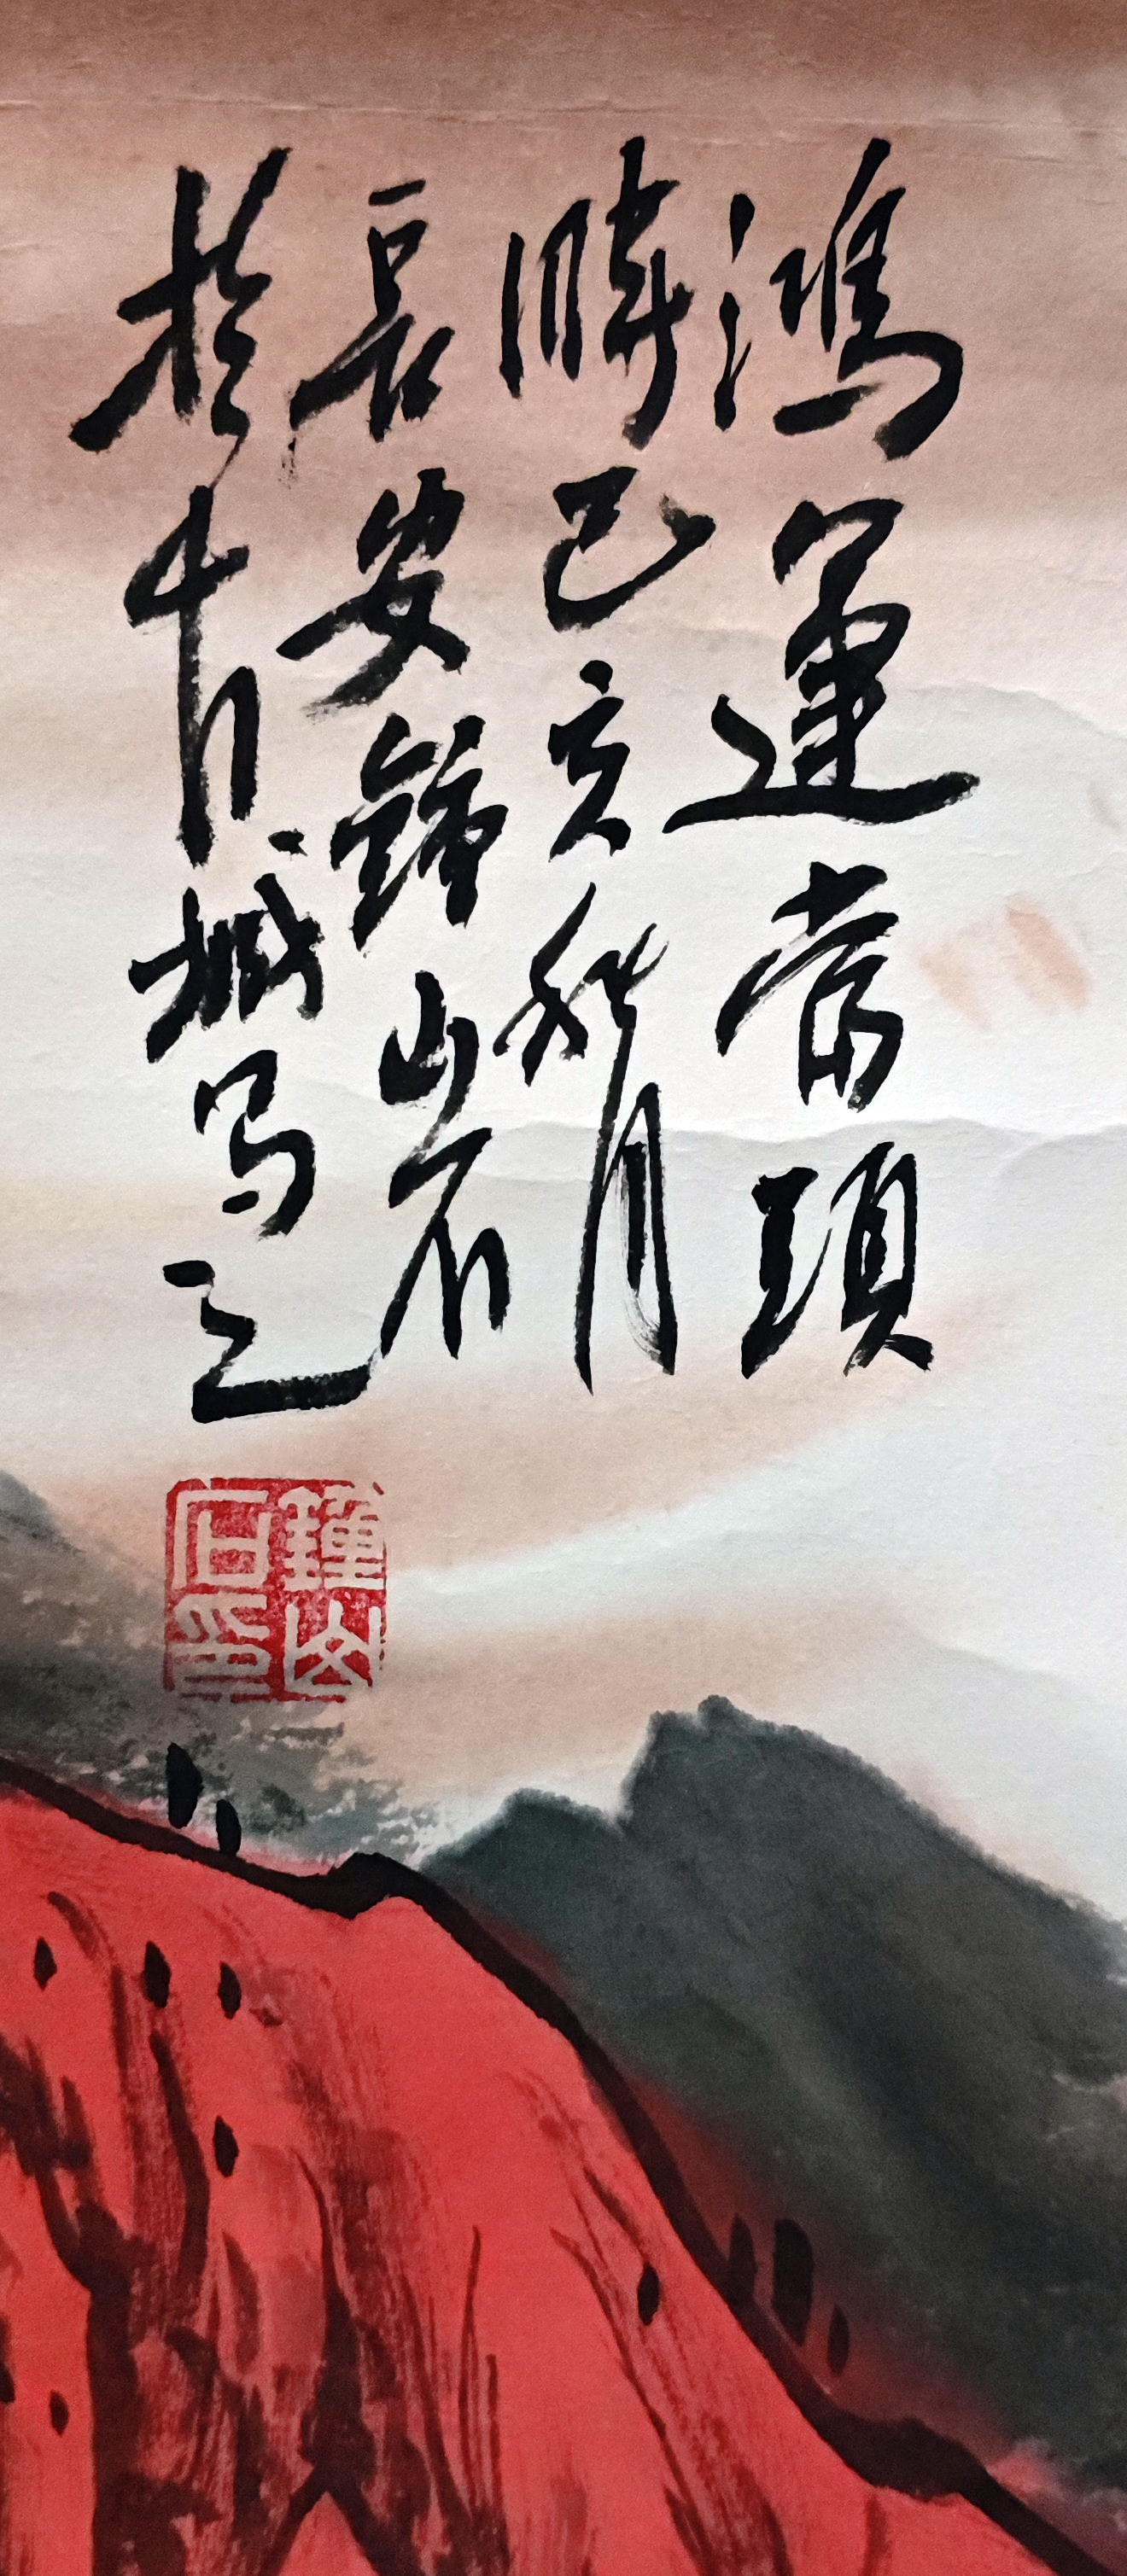 鴻運當頭
時己亥秋月
長安鍾山石
於古城写之
鍾山
石印